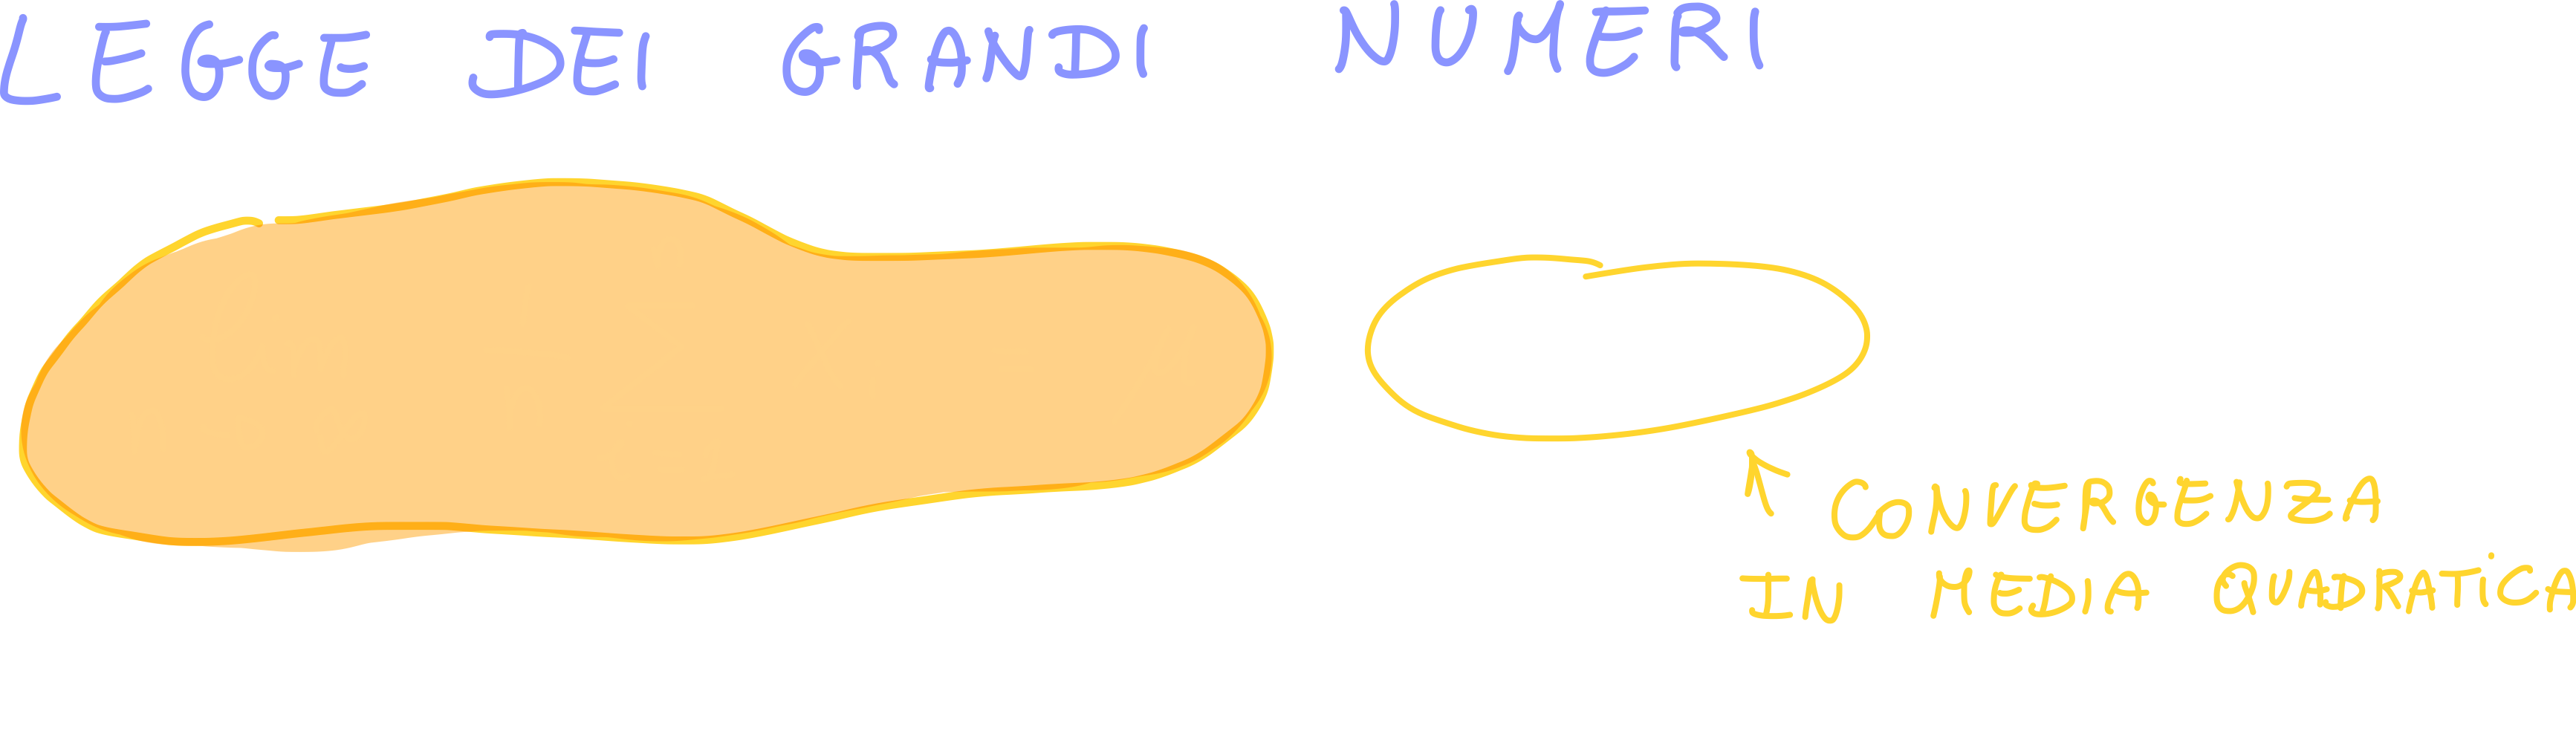 LEGGE DEI GRANDI NUMERI
CONVERGENZA
IN MEDIA QUADRATICA